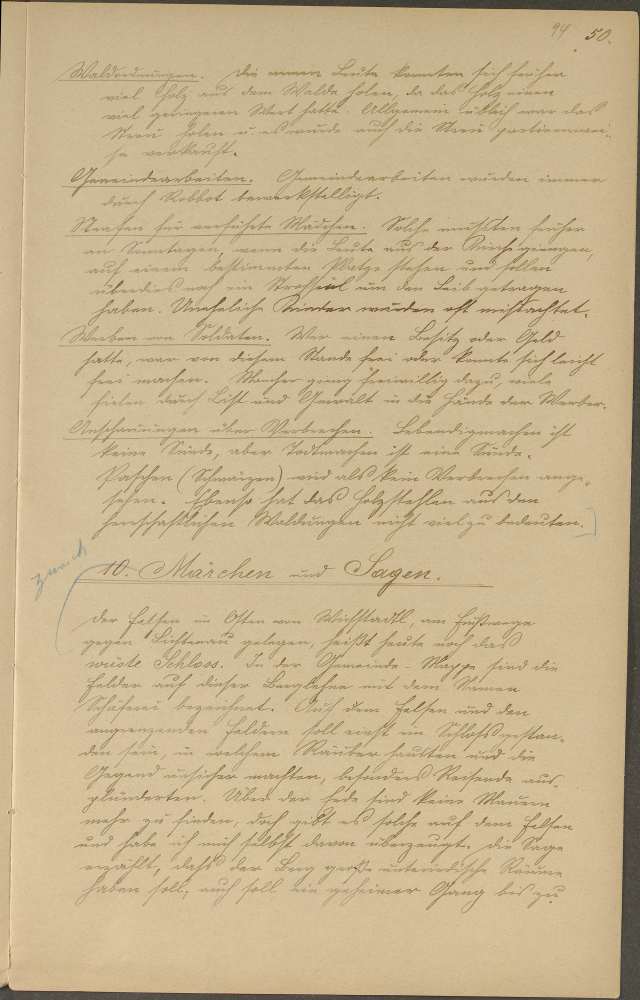 94 50.
Waldordnungen. Die armen Leute konnten sich früher
viel Holz aus dem Walde holen, da das Holz einen
viel geringeren Wert hatte. Allgemein üblich war das
Streu holen u. es wurde auch die Streu partienwei-
se verkauft.
Gemeindearbeiten. Gemeindearbeiten wurden immer
durch Robbot bewerkstelligt.
Strafen für verführte Mädchen. Solche mußten früher
an Sonntagen, wenn die Leute aus der Kirche giengen,
auf einem bestimmten Platze stehen und sollen
überdies noch ein Strohseil um den Leib getragen
haben. Uneheliche Kinder wurden oft mißachtet.
Werben von Soldaten. Wer einen Besitz oder Geld
hatte, war von diesem Stande frei oder konnte sich leicht
frei machen. Mancher gieng freiwillig dazu, viele
fielen durch List und Gewalt in die Hände der Werber.
Anschauungen über Verbrechen. Lebendigmachen ist
keine Sünde, aber Todtmachen ist eine Sünde.
Paschen (Schwärzen) wird als kein Verbrechen ange-
sehen. Ebenso hat das Holzstehlen aus den
herrschaftlichen Waldungen nicht viel zu bedeuten.
zurück
10. Märchen und Sagen.
Der Felsen im Osten von Wichstadtl, am Fußwege
gegen Lichtenau gelegen, heißt heute noch das
wüste Schloss. In der Gemeinde-Mappe sind die
Felder auf dieser Berglehne mit dem Namen
Schäferei bezeichnet. Auf dem Felsen und den
angrenzenden Feldern soll einst ein Schloß gestan-
den sein, in welchem Räuber hausten und die
Gegend unsicher machten, besonders Reisende aus-
plünderten. Über der Erde sind keine Mauern
mehr zu finden, doch gibt es solche auf dem Felsen
und habe ich mich selbst davon überzeugt. Die Sage
erzählt, daß der Berg große unterirdische Räume
haben soll; auch soll ein geheimer Gang bis zu